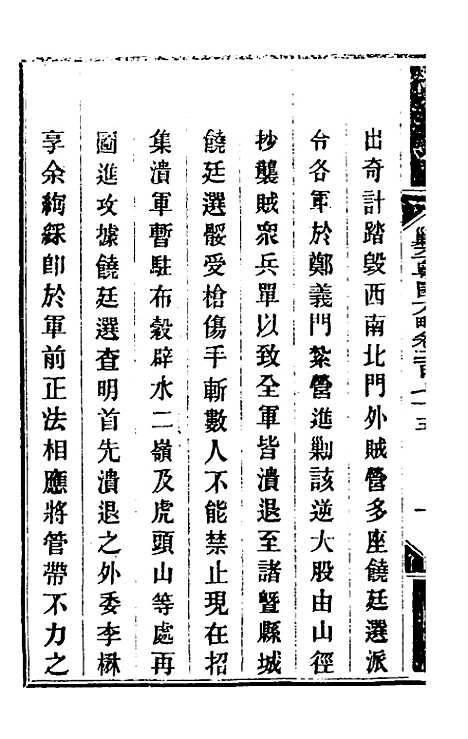 出奇計踏毀西南北門外賊營多座饒廷選派
令各軍於鄭義門紮營進剿該逆大股由山徑
抄襲賊衆兵單以致全軍皆潰退至諸曁縣城
饒廷選骽受槍傷手斬數人不能禁止現在招
集潰軍暫駐布穀辟水二嶺及虎頭山等處再
圖進攻㨿饒廷選查明首先潰退之外委李楙
享余絢綵即於軍前正法相應將管帶不力之